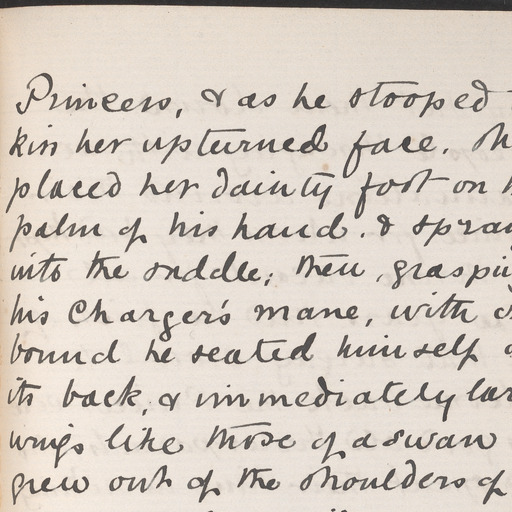 Princess, & as he stooped
kiss her upturned face. Sh
placed her dainty foot on h
palm of his hand. & spran
into the saddle; then, graspin
his Charger's mane, with o
bound he seated himself
its back, & immediately lar
wings like those of a swan
grew out of the shoulders of